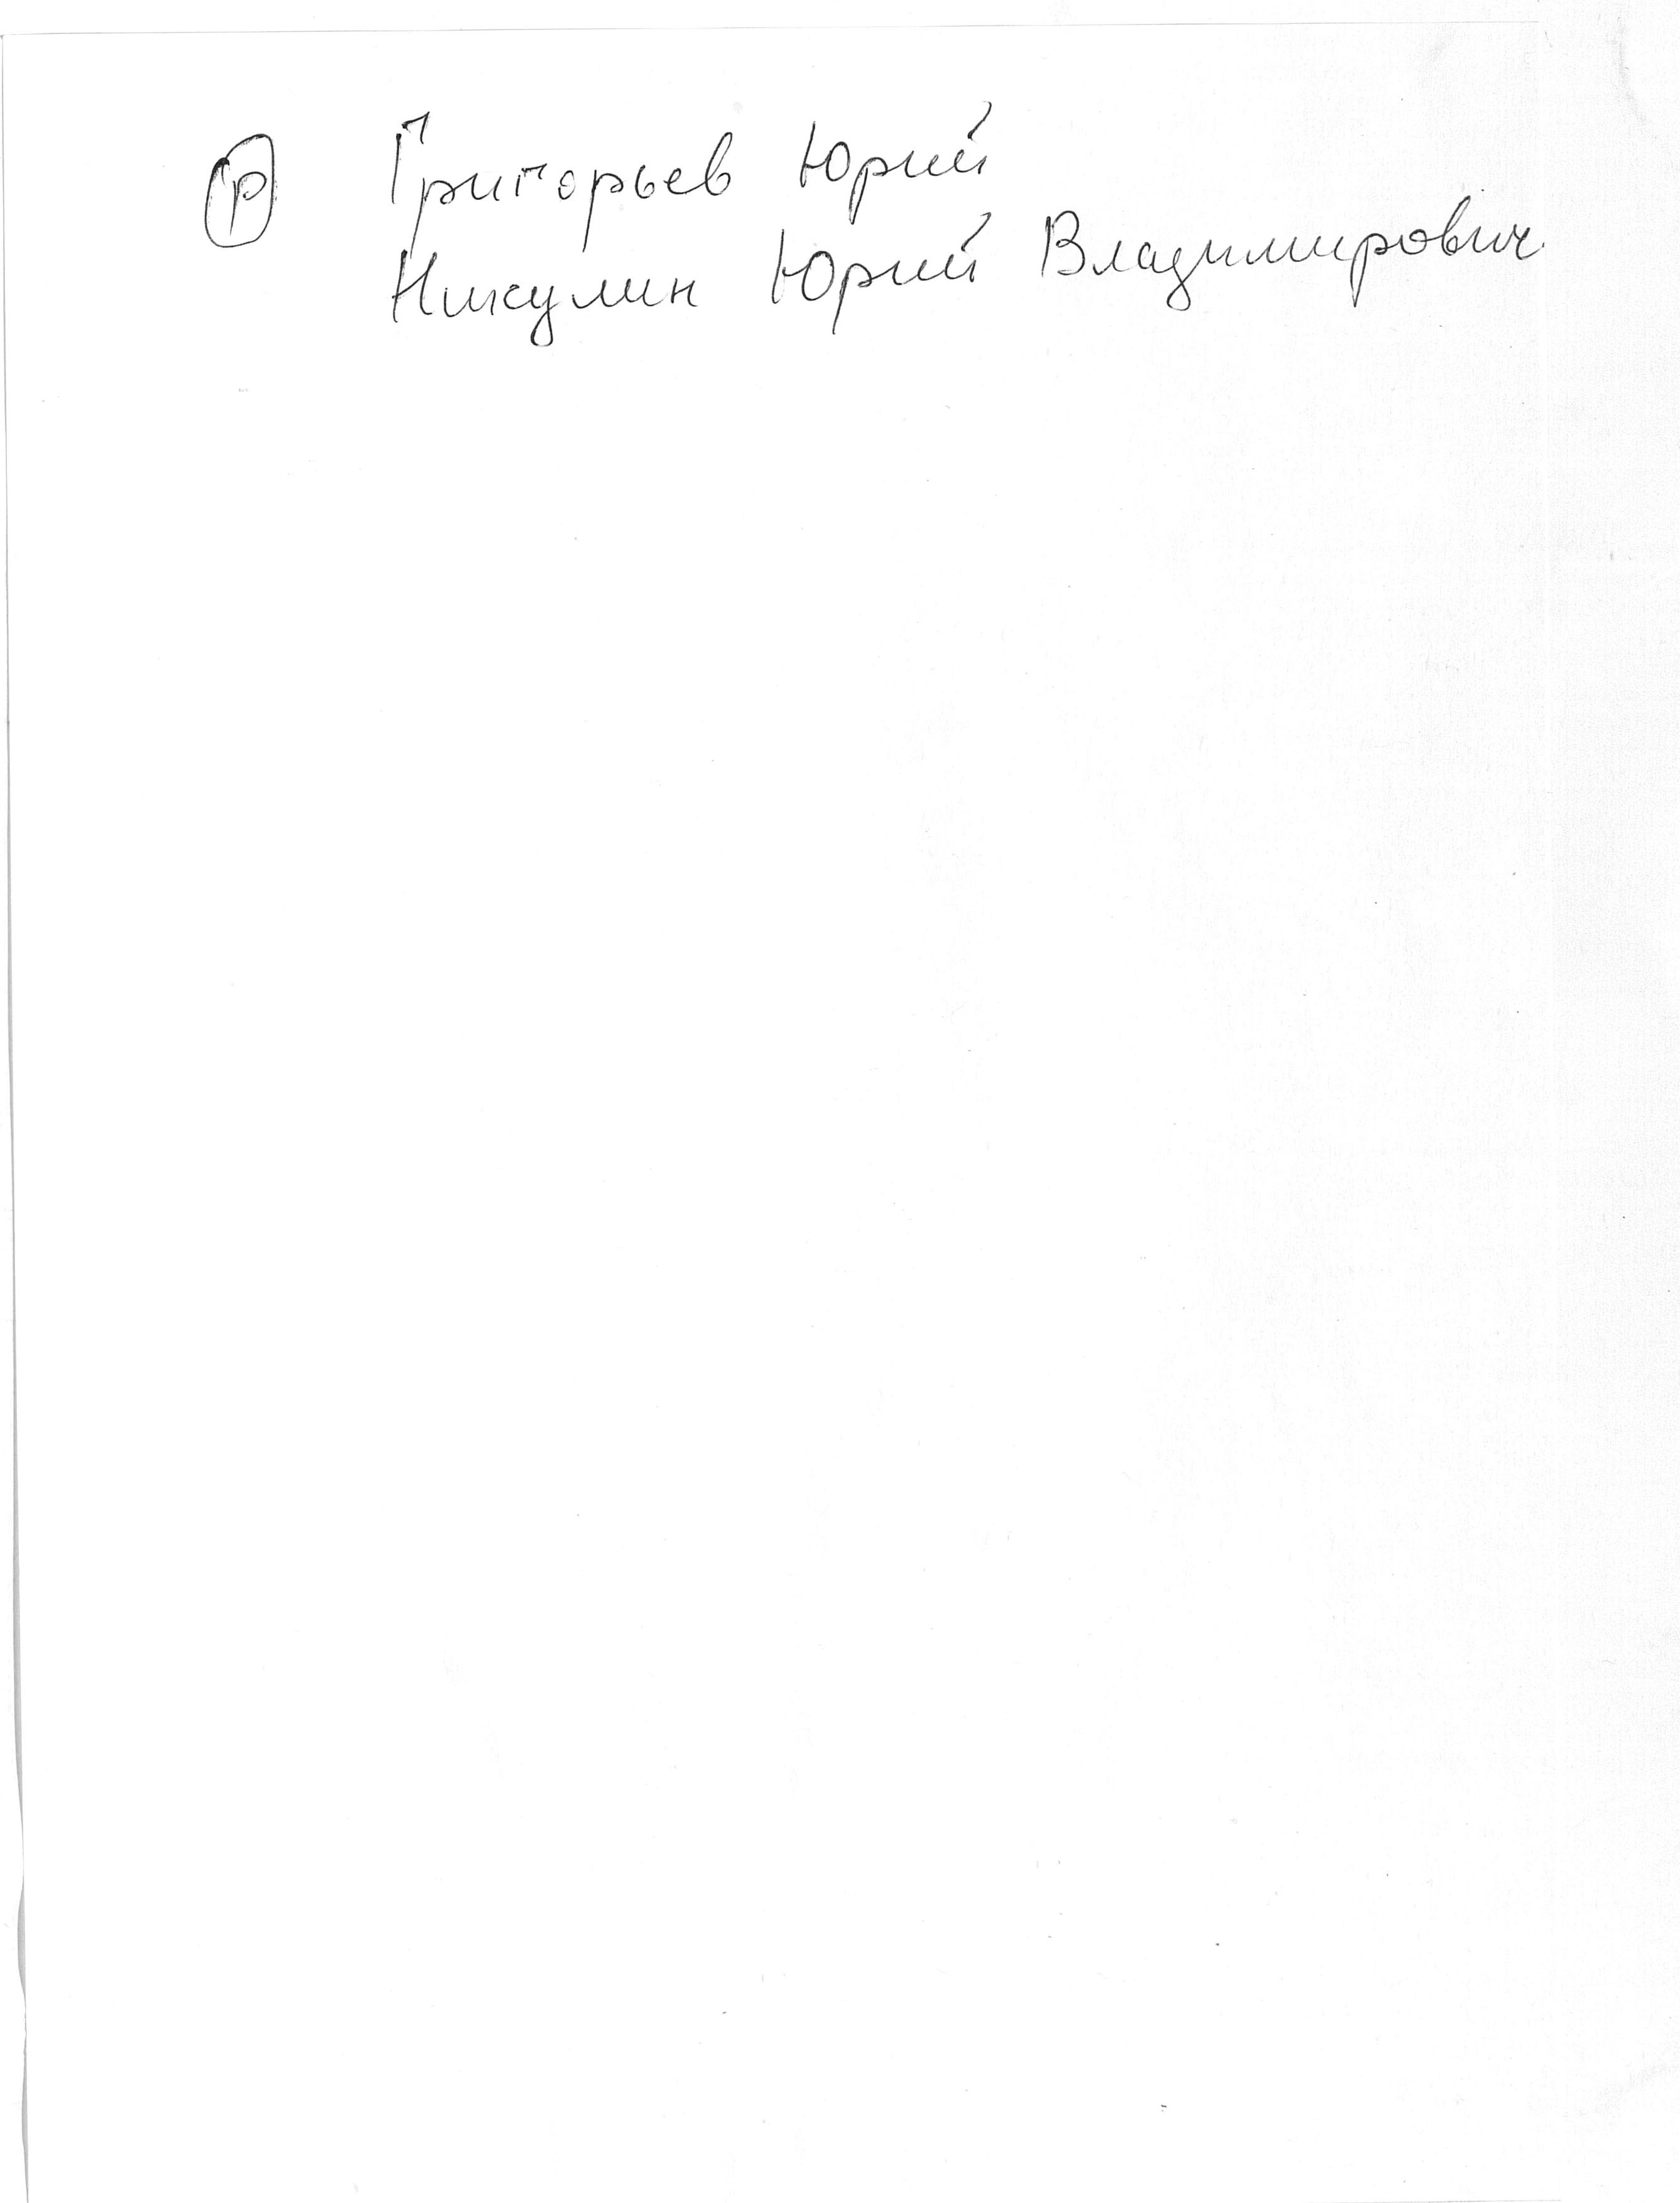 Р Григорьев Юрий
Никулин Юрий Владимирович.